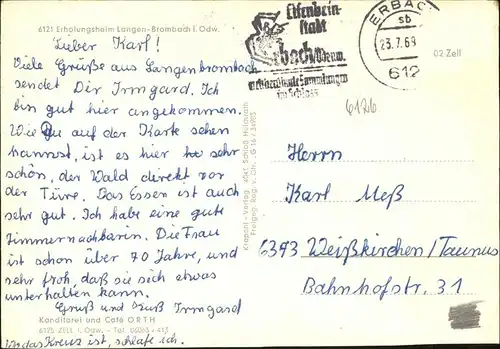 6121 Erholungsheim Langen-Brombach i. Odw.
Lieber Karl!
Viele Grüße aus Langenbrombach
sendet Dir Irmgard. Ich
bin gut hier angekommen.
Wie Du auf der Karte sehen
kannst, ist es hier sehr
schön, der Wald direkt vor
der Türe. Das Essen ist auch
sehr gut. Ich habe eine gute
Zimmernachbarin. Die Frau
ist schon über 70 Jahre, und
sehr froh, daß sie sich etwas
unterhalten kann.
Gruß und Kuß Irmgard
Konditorei und Café ORTH
6125 ZELL i. Odw. - Tel. 06063 - 413
wo das Kreuz ist, schlafe ich.
Elfenbein-
stadt
Erbach Odenw.
weltberühmte Sammlungen
im Schloss
ERBACH
sb
23.7.69
612
02 Zell
6126
Herrn
Karl Meß
6393 Weißkirchen/Taunus
Bahnhofstr. 31